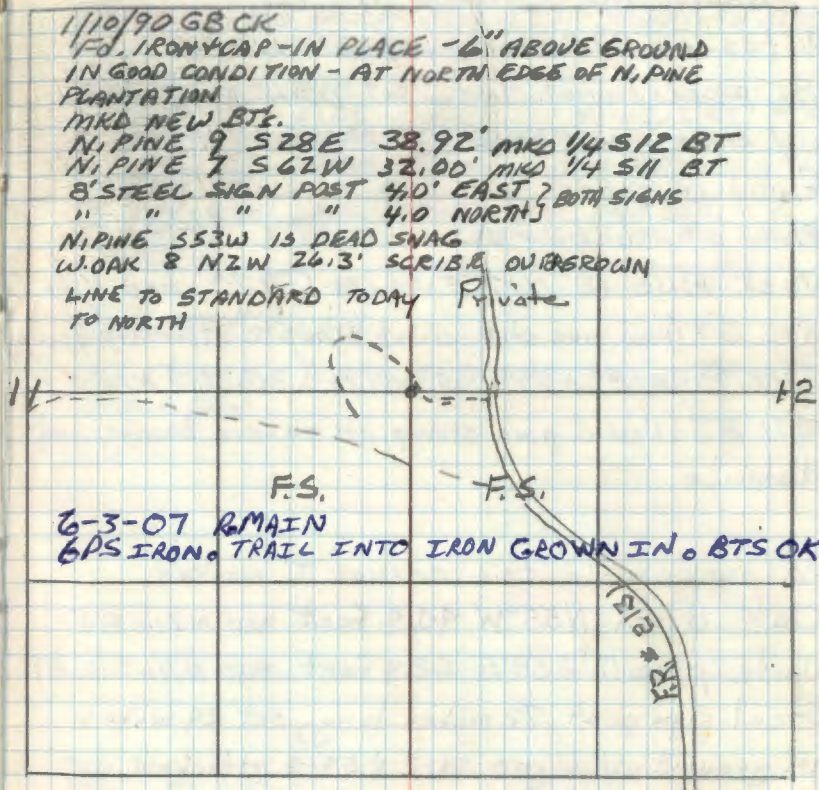 1/10/90 GB CK
Fd. IRON & CAP - IN PLACE - 6" ABOVE GROUND
IN GOOD CONDITION - AT NORTH EDGE OF N. PINE
PLANTATION
MKD NEW BTs.
N. PINE 9 S28E 38.92' MKD 1/4 S12 BT
N. PINE 7 S62W 32.00' MKD 1/4 S11 BT
8' STEEL SIGN POST 4.0' EAST } BOTH SIGNS
" " " " 4.0 NORTH }
N. PINE S53W IS DEAD SNAG
W. OAK 8 N2W 26.3' SCRIBE OVERGROWN
LINE TO STANDARD TODAY Private
TO NORTH
11 12
F.S. F.S.
6-3-07 ROMAIN
GPS IRON. TRAIL INTO IRON GROWN IN. BTS OK
F.R. #